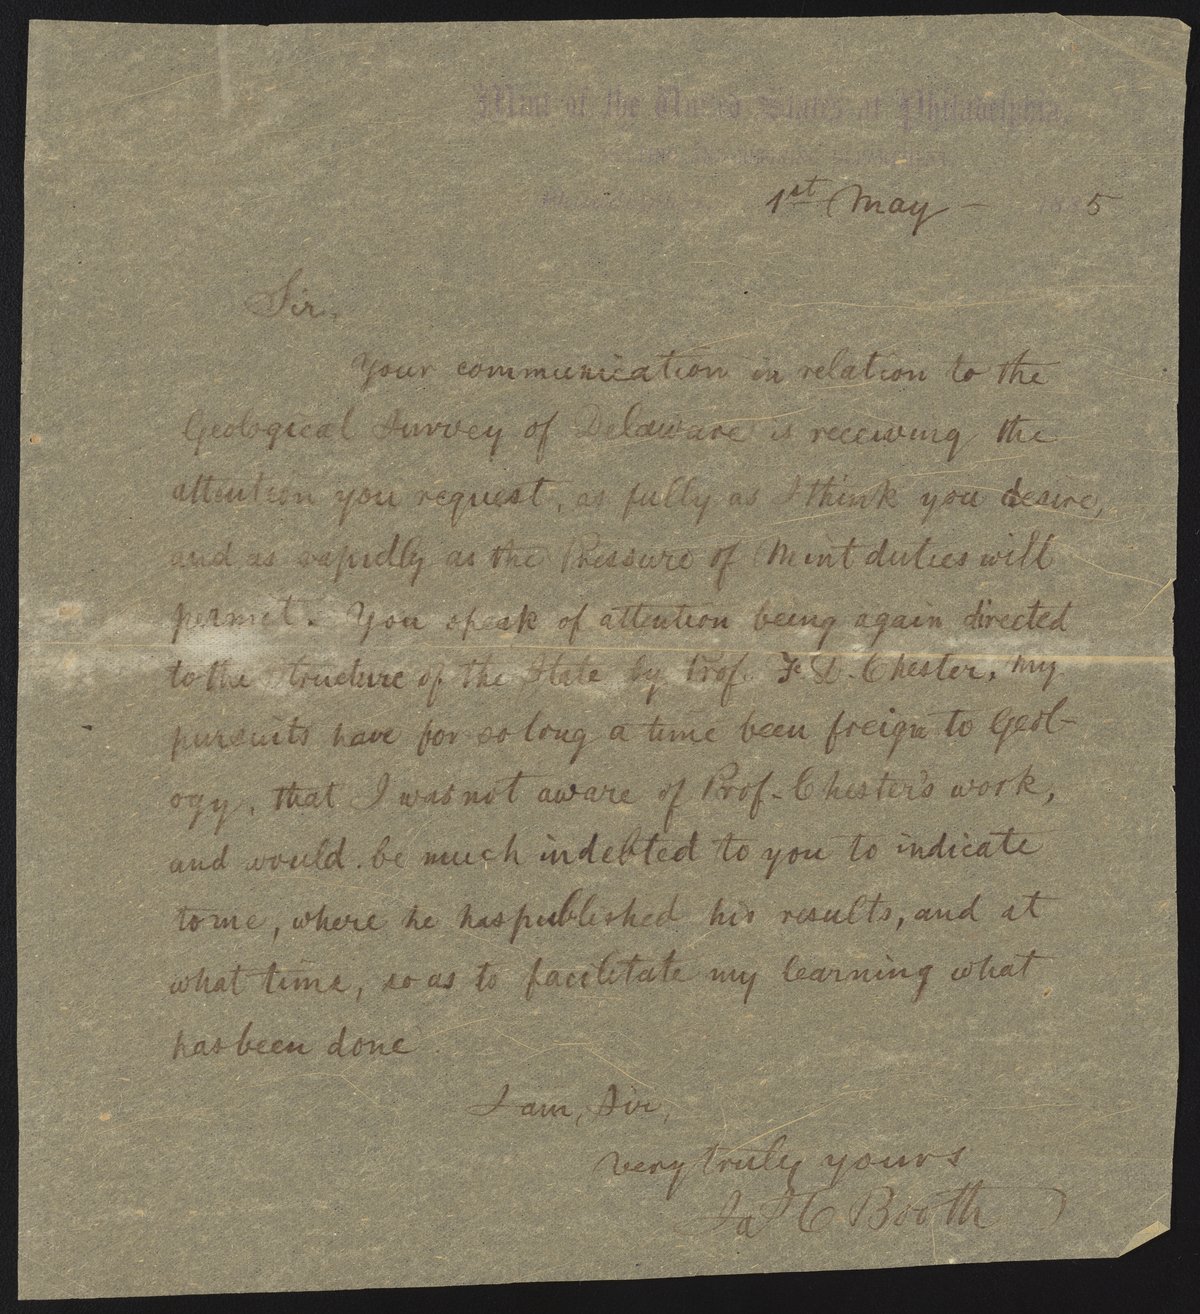 Mint of the United States at Philadelphia,
1st May - 5
Sir,
Your communication in relation to the
Geological Survey of Delaware is receiving the
attention you request, as fully as I think you desire,
and as rapidly as the Pressure of Mint duties will
permit. You speak of attention being again directed
to the structure of the State by Prof. F. D. Chester. My
pursuits have for so long a time been freign to Geol-
ogy, that I was not aware of Prof. Chester's work,
and would be much indebted to you to indicate
to me, where he has published his results, and at
what time, so as to facilitate my learning what
has been done
I am, Sir,
very truly yours
Jas C Booth